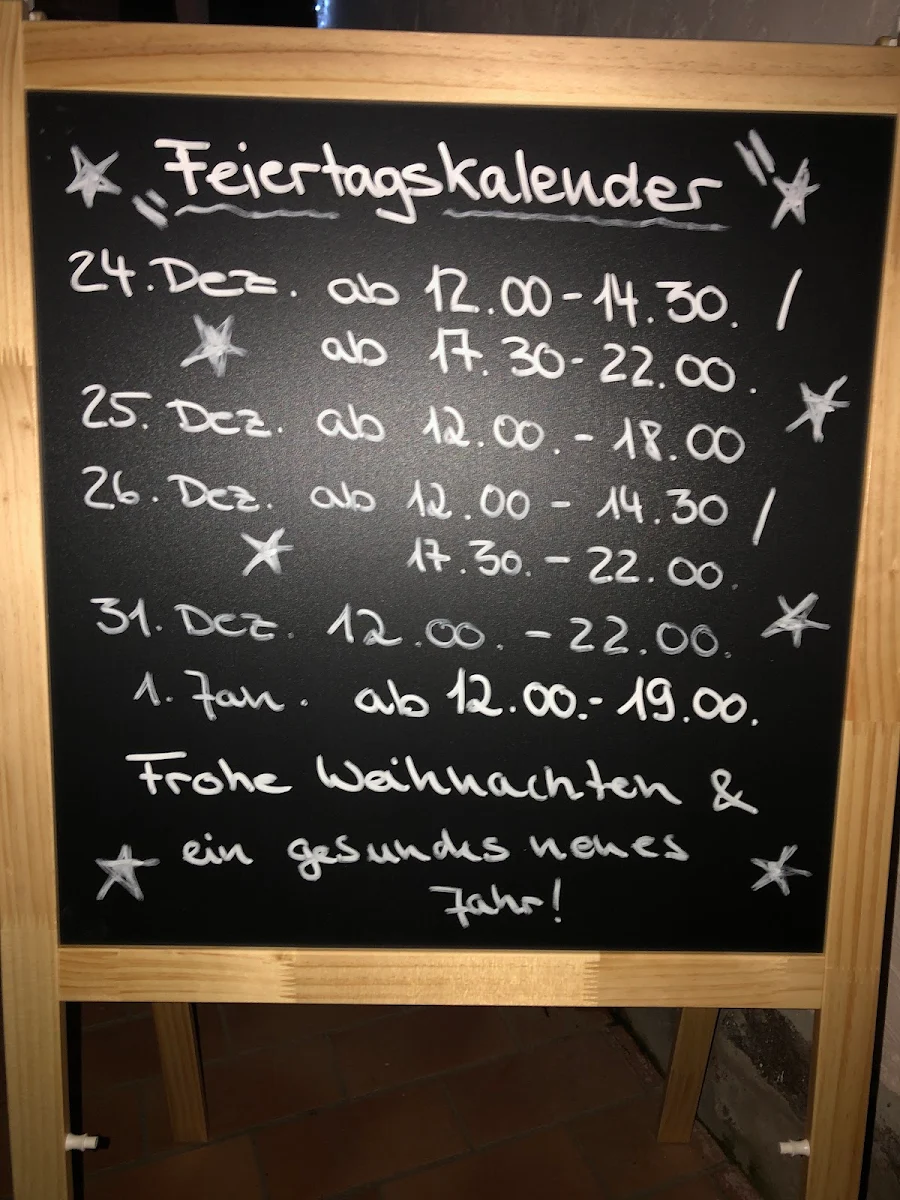 Feiertagskalender
24. Dez. ab 12.00 - 14.30. /
ab 17.30 - 22.00.
25. Dez. ab 12.00. - 18.00
26. Dez. ab 12.00 - 14.30 /
17.30. - 22.00.
31. Dez. 12.00. - 22.00.
1. Jan. ab 12.00.- 19.00.
Frohe Weihnachten &
ein gesundes neues
Jahr!